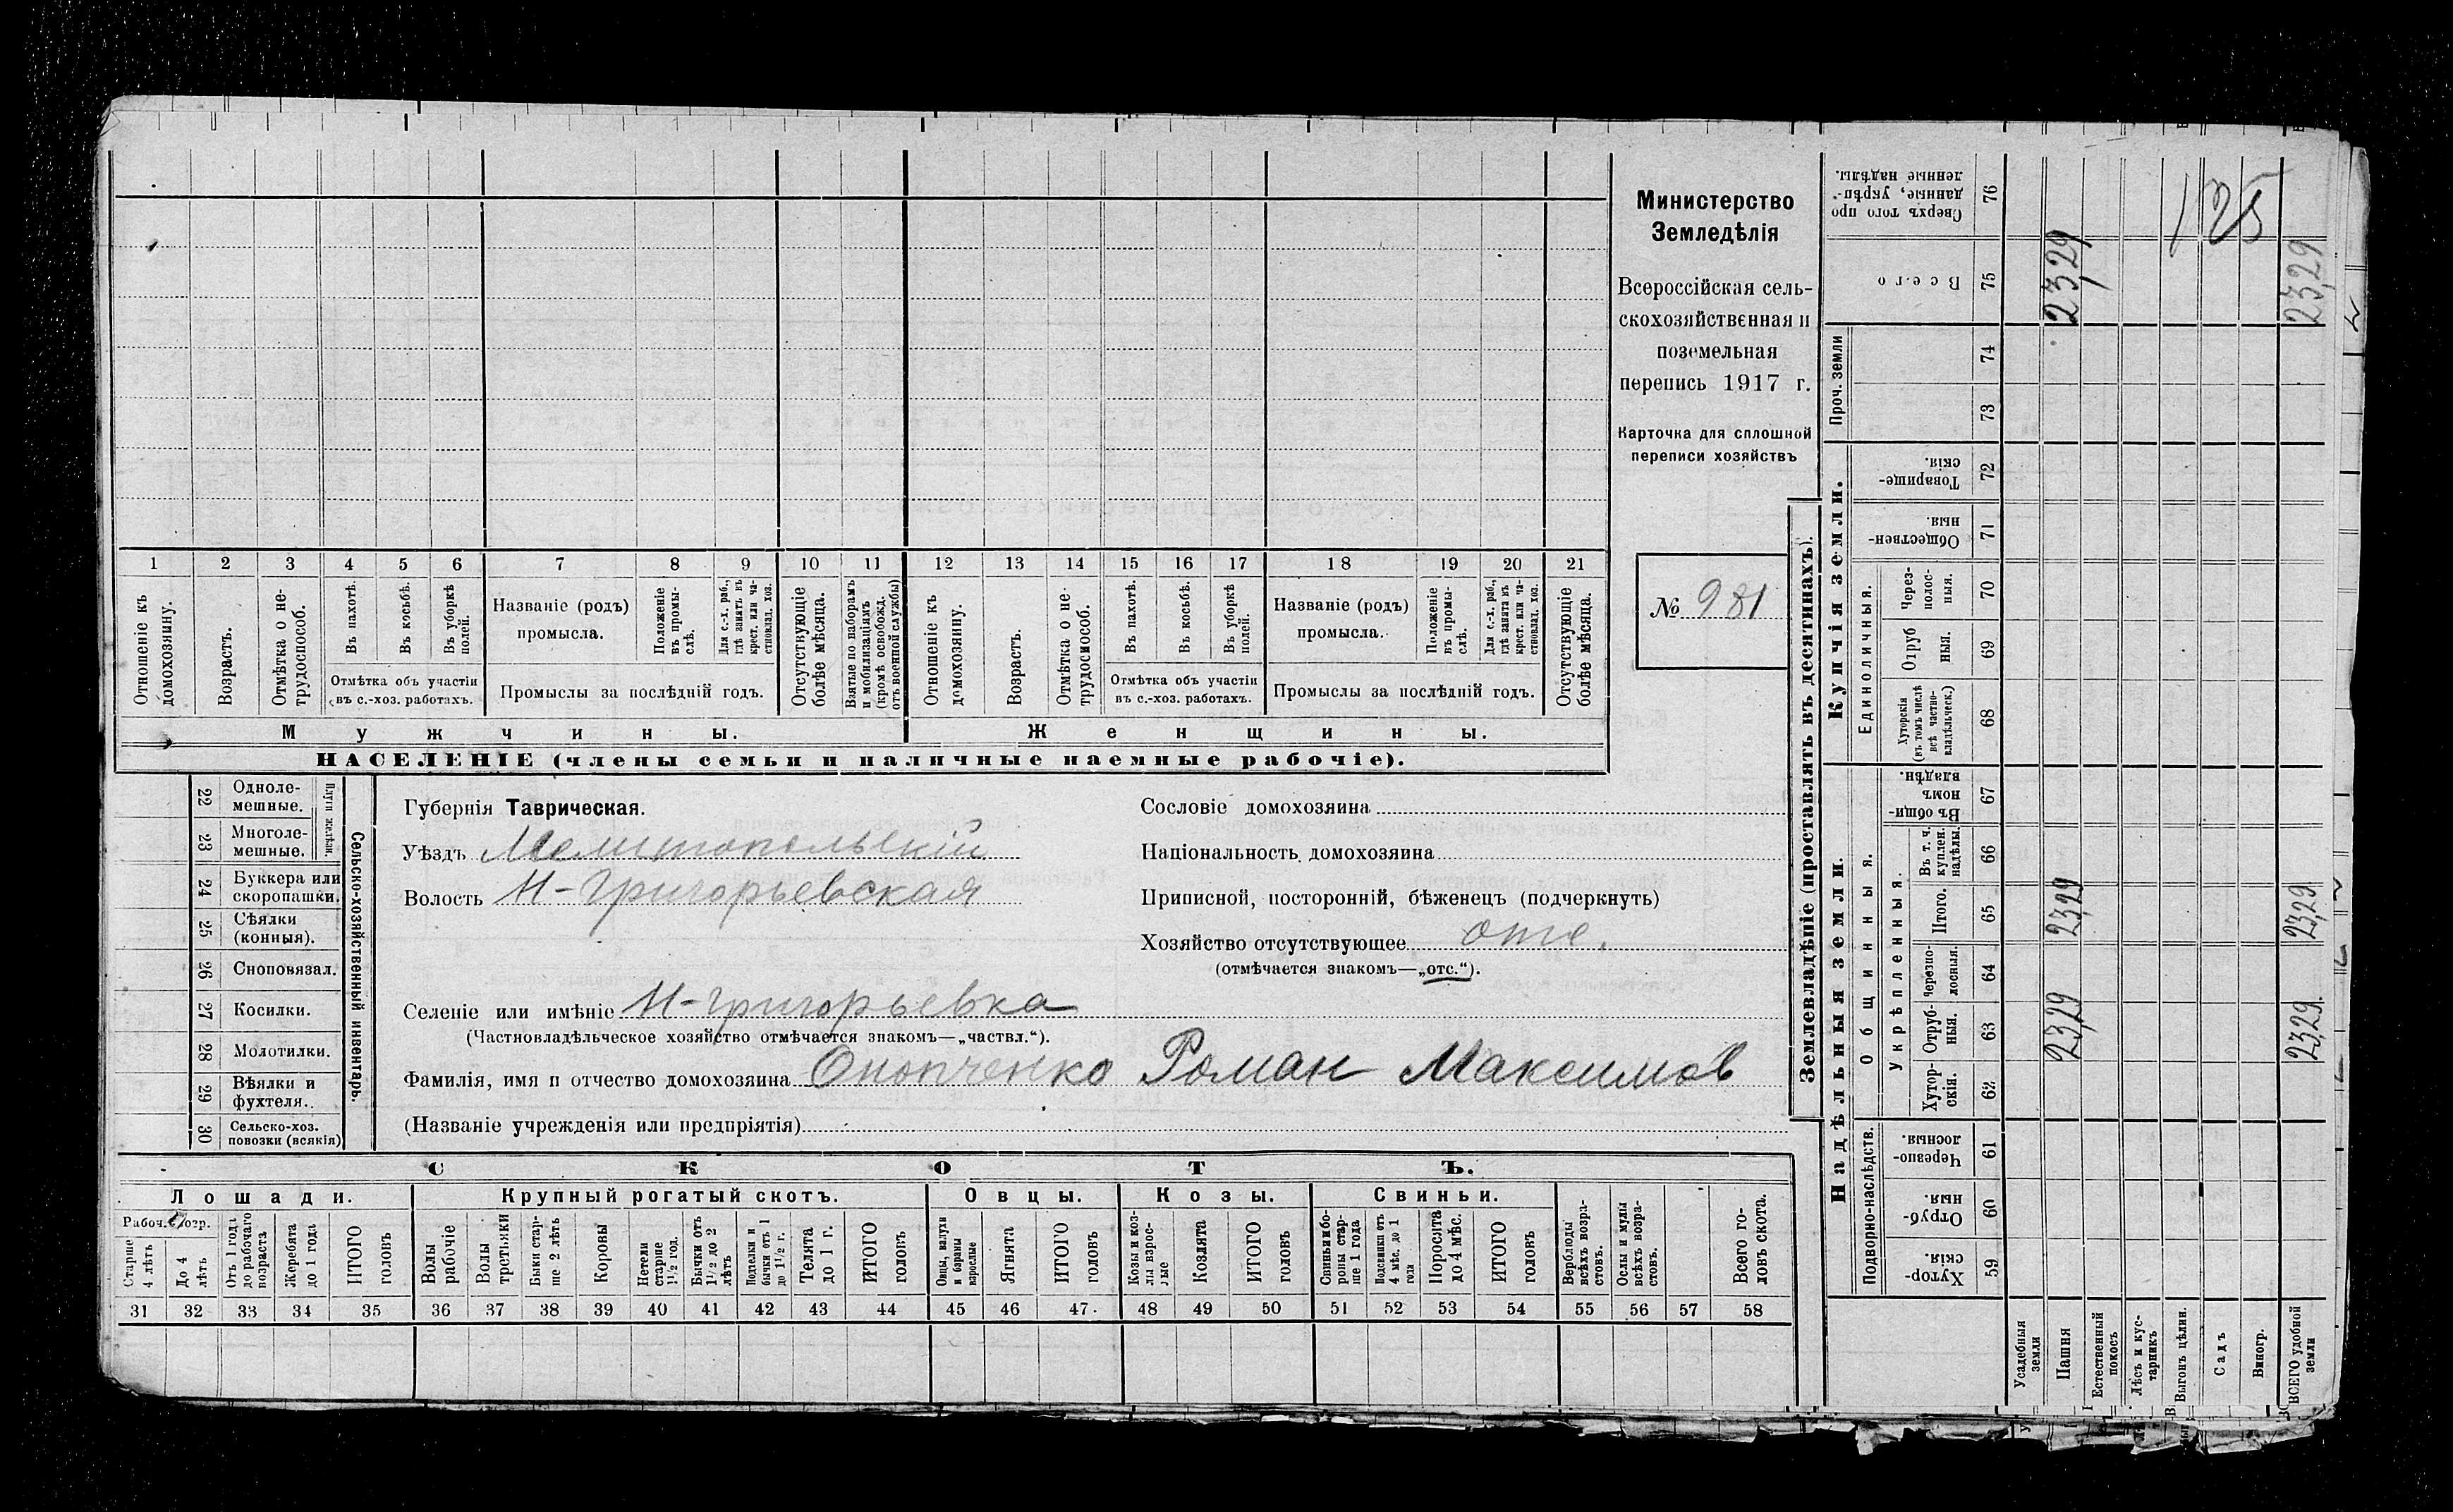 Министерство
Земледѣлія
Всероссійская сель-
скохозяйственная и
поземельная
перепись 1917 г.
Карточка для сплошной
переписи хозяйствъ
№ 981
1 2 3 4 5 6 7 8 9 10 11 12 13 14 15 16 17 18 19 20 21
Отношеніе къ домохозяину.
Возрастъ.
Отмѣтка о не-трудоспособ.
Въ пахотѣ.
Въ косьбѣ.
Въ уборкѣ полей.
Отмѣтка объ участіи
въ с.-хоз. работахъ.
Названіе (родъ)
промысла.
Положеніе въ промы-слѣ.
Для с.-х. раб., гдѣ занятъ въ крест. или ча-стновлад. хоз.
Промыслы за послѣдній годъ.
Отсутствующіе болѣе мѣсяца.
Взятые по наборамъ и мобилизаціямъ (кромѣ освобожд. отъ военной службы)
Отношеніе къ домохозяину.
Возрастъ.
Отмѣтка о не-трудоспособ.
Въ пахотѣ.
Въ косьбѣ.
Въ уборкѣ полей.
Отмѣтка объ участіи
въ с.-хоз. работахъ.
Названіе (родъ)
промысла.
Положеніе въ промы-слѣ.
Для с.-х. раб., гдѣ занята въ крест. или ча-стновлад. хоз.
Промыслы за послѣдній годъ.
Отсутствующіе болѣе мѣсяца.
Мужчины. Женщины.
НАСЕЛЕНІЕ (члены семьи и наличные наемные рабочіе).
Сельско-хозяйственный инвентарь.
Плуги желѣзн.
22 Одноле-мешные.
23 Многоле-мешные.
24 Буккера или скоропашки.
25 Сѣялки (конныя).
26 Сноповязал.
27 Косилки.
28 Молотилки.
29 Вѣялки и фухтеля.
30 Сельско-хоз. повозки (всякія)
Губернія Таврическая.
Уѣздъ Мелитопольскій
Волость Н-Григорьевская
Сословіе домохозяина
Національность домохозяина
Приписной, посторонній, бѣженецъ (подчеркнуть)
Хозяйство отсутствующее отс.
(отмѣчается знакомъ—„отс.“).
Селеніе или имѣніе Н-григорьевка
(Частновладѣльческое хозяйство отмѣчается знакомъ—„частвл.“).
Фамилія, имя и отчество домохозяина Онопченко Роман Максимов
(Названіе учрежденія или предпріятія)
СКОТЪ.
Лошади. Крупный рогатый скотъ. Овцы. Козы. Свиньи.
Рабоч. возр.
Старше 4 лѣтъ
До 4 лѣтъ
Отъ 1 года до рабочаго возраста
Жеребята до 1 года
ИТОГО головъ
Волы рабочіе
Волы третьяки
Быки стар-ше 2 лѣтъ
Коровы
Нетели старше 1½ год.
Бычки отъ 1½ до 2 лѣтъ
Подтелки и бычки отъ 1 до 1½ г.
Телята до 1 г.
ИТОГО головъ
Овцы, валухи и бараны взрослые
Ягнята
ИТОГО головъ
Козы и коз-лы взрос-лые
Козлята
ИТОГО головъ
Свиньи и бо-ровы стар-ше 1 года
Подсвинки отъ 4 мѣс. до 1 года
Поросята до 4 мѣс.
ИТОГО головъ
Верблюды всѣхъ возра-стовъ.
Ослы и мулы всѣхъ возра-стовъ.
Всего го-ловъ скота.
31 32 33 34 35 36 37 38 39 40 41 42 43 44 45 46 47 48 49 50 51 52 53 54 55 56 57 58
Землевладѣніе (проставлять въ десятинахъ).
Надѣльныя земли.
Купчія земли.
Проч. земли
Подворно-наслѣдств.
Общинныя.
Укрѣпленныя.
Единоличныя.
59 Хутор-скія.
60 Отруб-ныя.
61 Черезпо-лосныя.
62 Хутор-скія.
63 Отруб-ныя.
64 Черезпо-лосныя.
65 Итого.
66 Въ т. ч. куплен. надѣлы.
67 Въ общи-номъ владѣн.
68 Хуторскія (въ томъ числѣ всѣ частно-владѣльческ.)
69 Отруб-ныя.
70 Через-полос-ныя.
71 Обществен-ныя.
72 Товарище-скія.
73
74
75 Всего
76 Сверхъ того про-данные, укрѣп-ленные надѣлы.
Усадебныя земли
Пашня 23,29 23,29 23,29
Естественный покосъ
Лѣсъ и кус-тарникъ
Выгонъ цѣлин.
Садъ
Виногр.
ВСЕГО удобной земли 23,29. 23,29 23,29
125